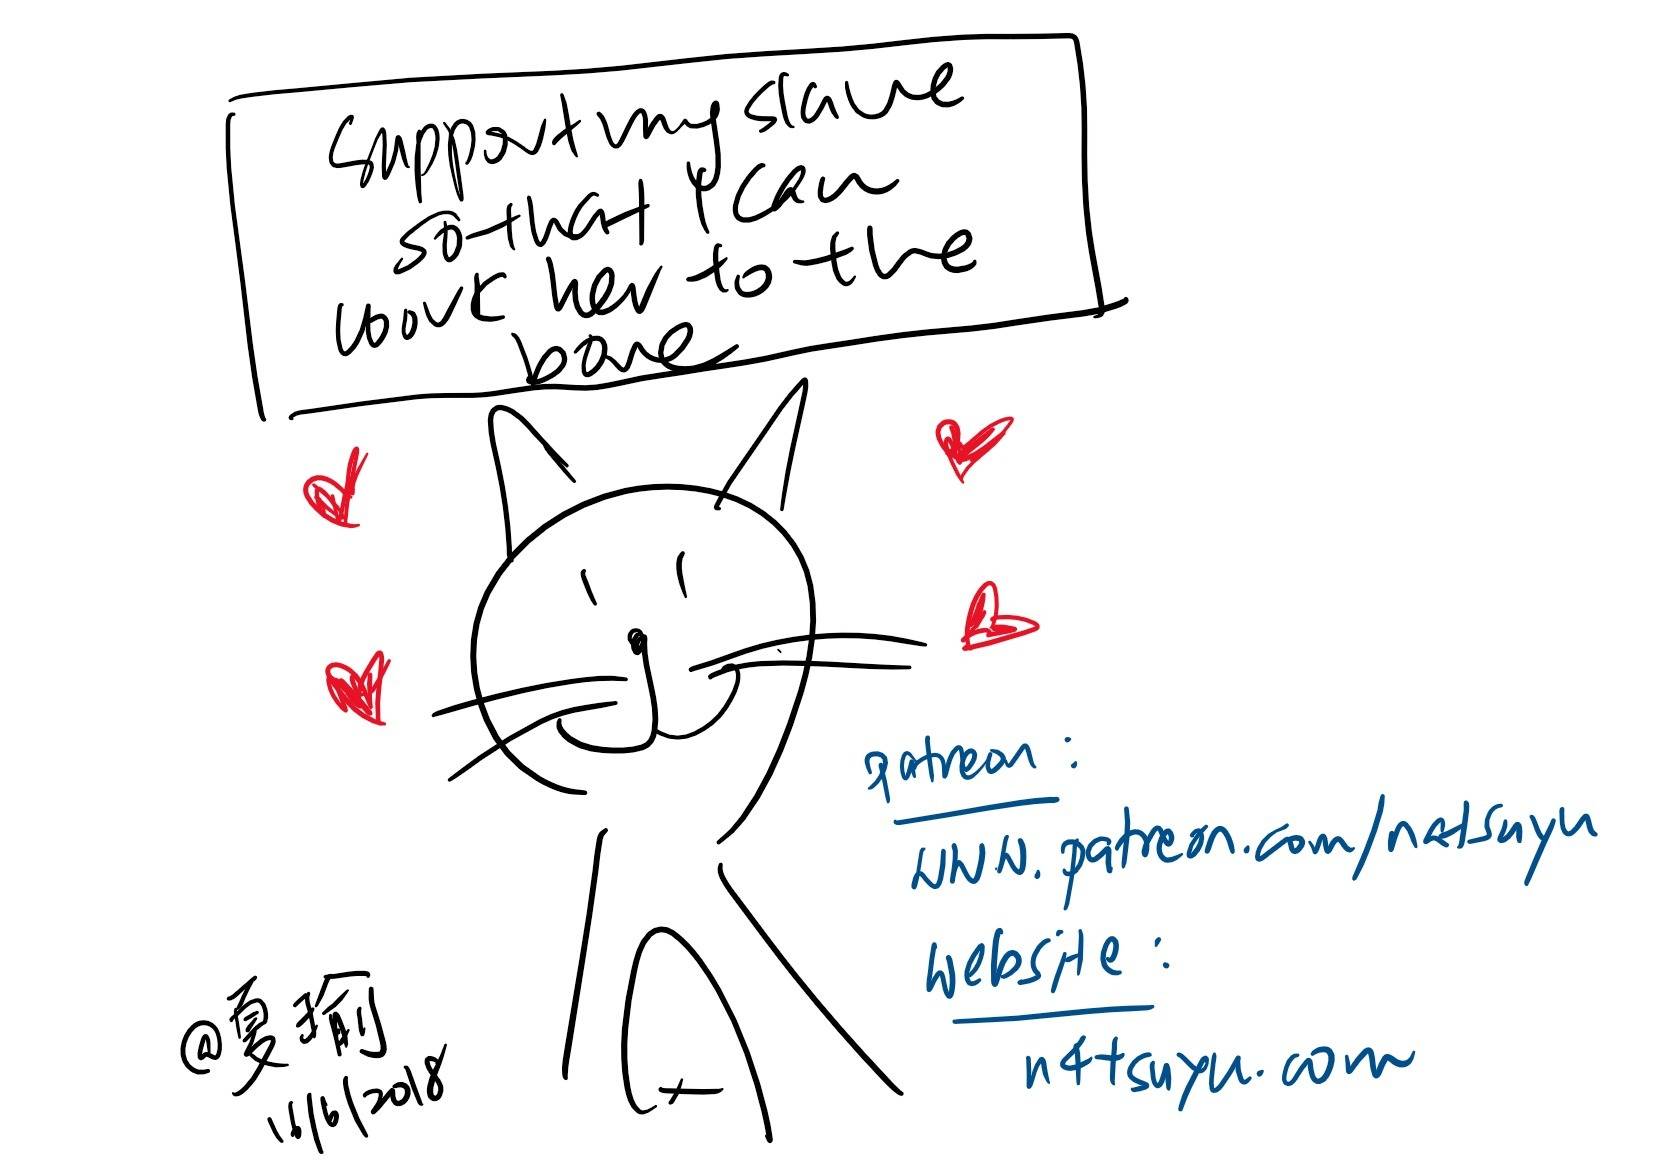 support my slave
so that I can
work her to the
bone
patreon:
www.patreon.com/n4tsuyu
website:
n4tsuyu.com
@夏瑜
16/6/2018